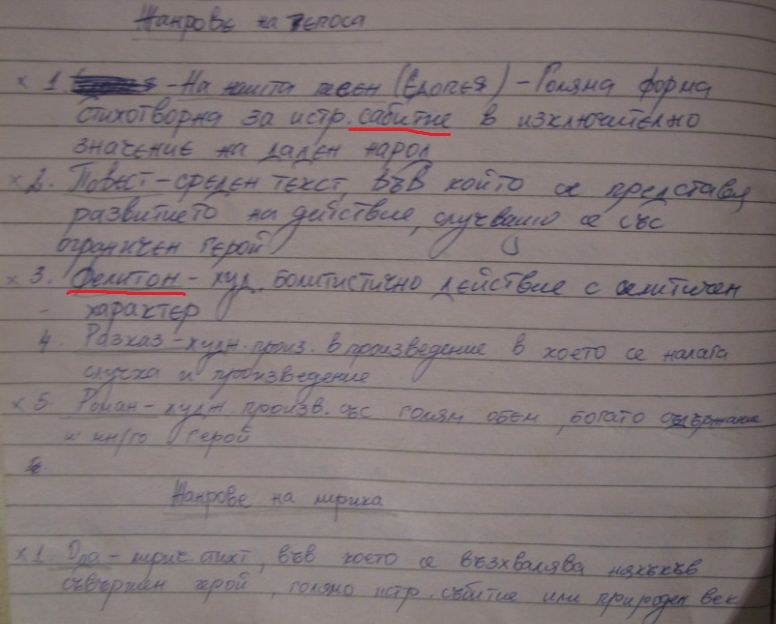 Жанрове на епоса
x 1 - На нашта песен (Епопея) - Голяма форма
стихотворна за истр. сабитие в изключително
значение на даден народ
x 2. Повест - среден текст, във който се представя
развитието на действие, случващо се със
ограничен герой
x 3. Фелитон - худ. болитистично действие с
- характер
4. Разказ - худж. произ. в произведение в което се налага
случка и произведение
x 5. Роман - худж произв. със голям обем, богато съдържание
и мн/го герой
Жанрове на лирика
x 1. Ода - лирич стихт, във което се възхвалява някъкъв
съвършен герой, голямо истр. събитие или природен век